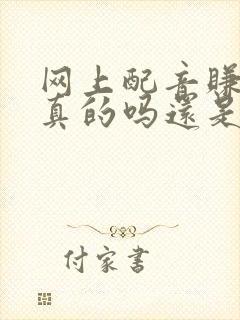 网上配音赚
真的吗还是
付家书